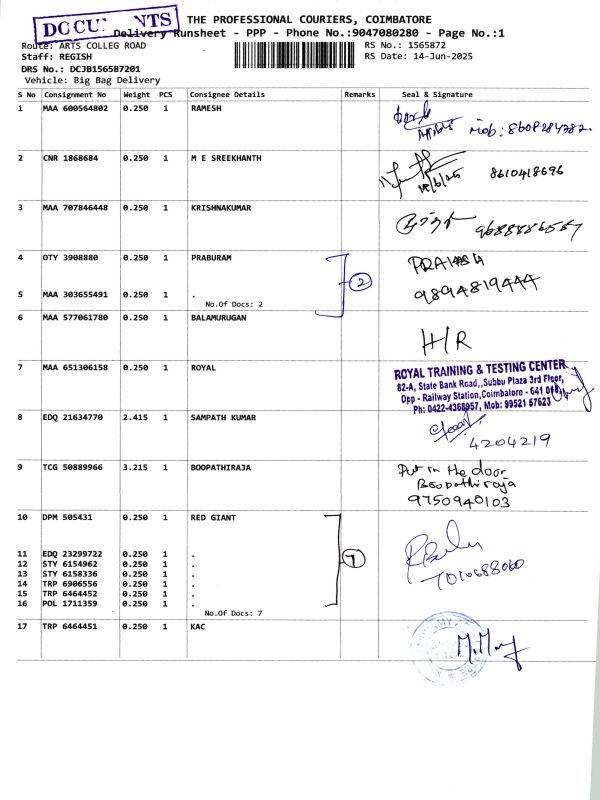 DOCUMENTS
THE PROFESSIONAL COURIERS, COIMBATORE
Delivery Runsheet - PPP - Phone No.:9047080280 - Page No.:1
Route: ARTS COLLEG ROAD
RS No.: 1565872
Staff: REGISH
RS Date: 14-Jun-2025
DRS No.: DCJB156587201
Vehicle: Big Bag Delivery
S No Consignment No Weight PCS Consignee Details Remarks Seal & Signature
1 MAA 600564802 0.250 1 RAMESH
Mob: 8608284782
2 CNR 1868684 0.250 1 M E SREEKHANTH
8610418696
3 MAA 707846448 0.250 1 KRISHNAKUMAR
4 OTY 3908880 0.250 1 PRABURAM
2
9894819444
5 MAA 303655491 0.250 1 .
No.Of Docs: 2
6 MAA 577061780 0.250 1 BALAMURUGAN
H/R
7 MAA 651306158 0.250 1 ROYAL
ROYAL TRAINING & TESTING CENTER
82-A, State Bank Road,,Subbu Plaza 3rd Floor,
Opp - Railway Station,Coimbatore - 641 018,
Ph: 0422-4368957, Mob: 99521 67623
8 EDQ 21634770 2.415 1 SAMPATH KUMAR
4204219
9 TCG 50889966 3.215 1 BOOPATHIRAJA
Put in the door
Boopathiraja
9750940103
10 DPM 505431 0.250 1 RED GIANT
7
7010688060
11 EDQ 23299722 0.250 1 .
12 STY 6154962 0.250 1 .
13 STY 6158336 0.250 1 .
14 TRP 6906556 0.250 1 .
15 TRP 6464452 0.250 1 .
16 POL 1711359 0.250 1 .
No.Of Docs: 7
17 TRP 6464451 0.250 1 KAC